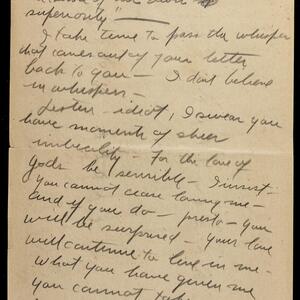 superiority" —
I take time to pass the whisper
that comes out of your letter
back to you — I don't believe
in whispers —
Listen — idiot, I swear you
have moments of sheer
imbecility — For the love of
gods be sensible — I insist —
you cannot cease loving me —
and if you do — presto — you
will be surprised — your love
will continue to live in me —
What you have given me
you cannot take